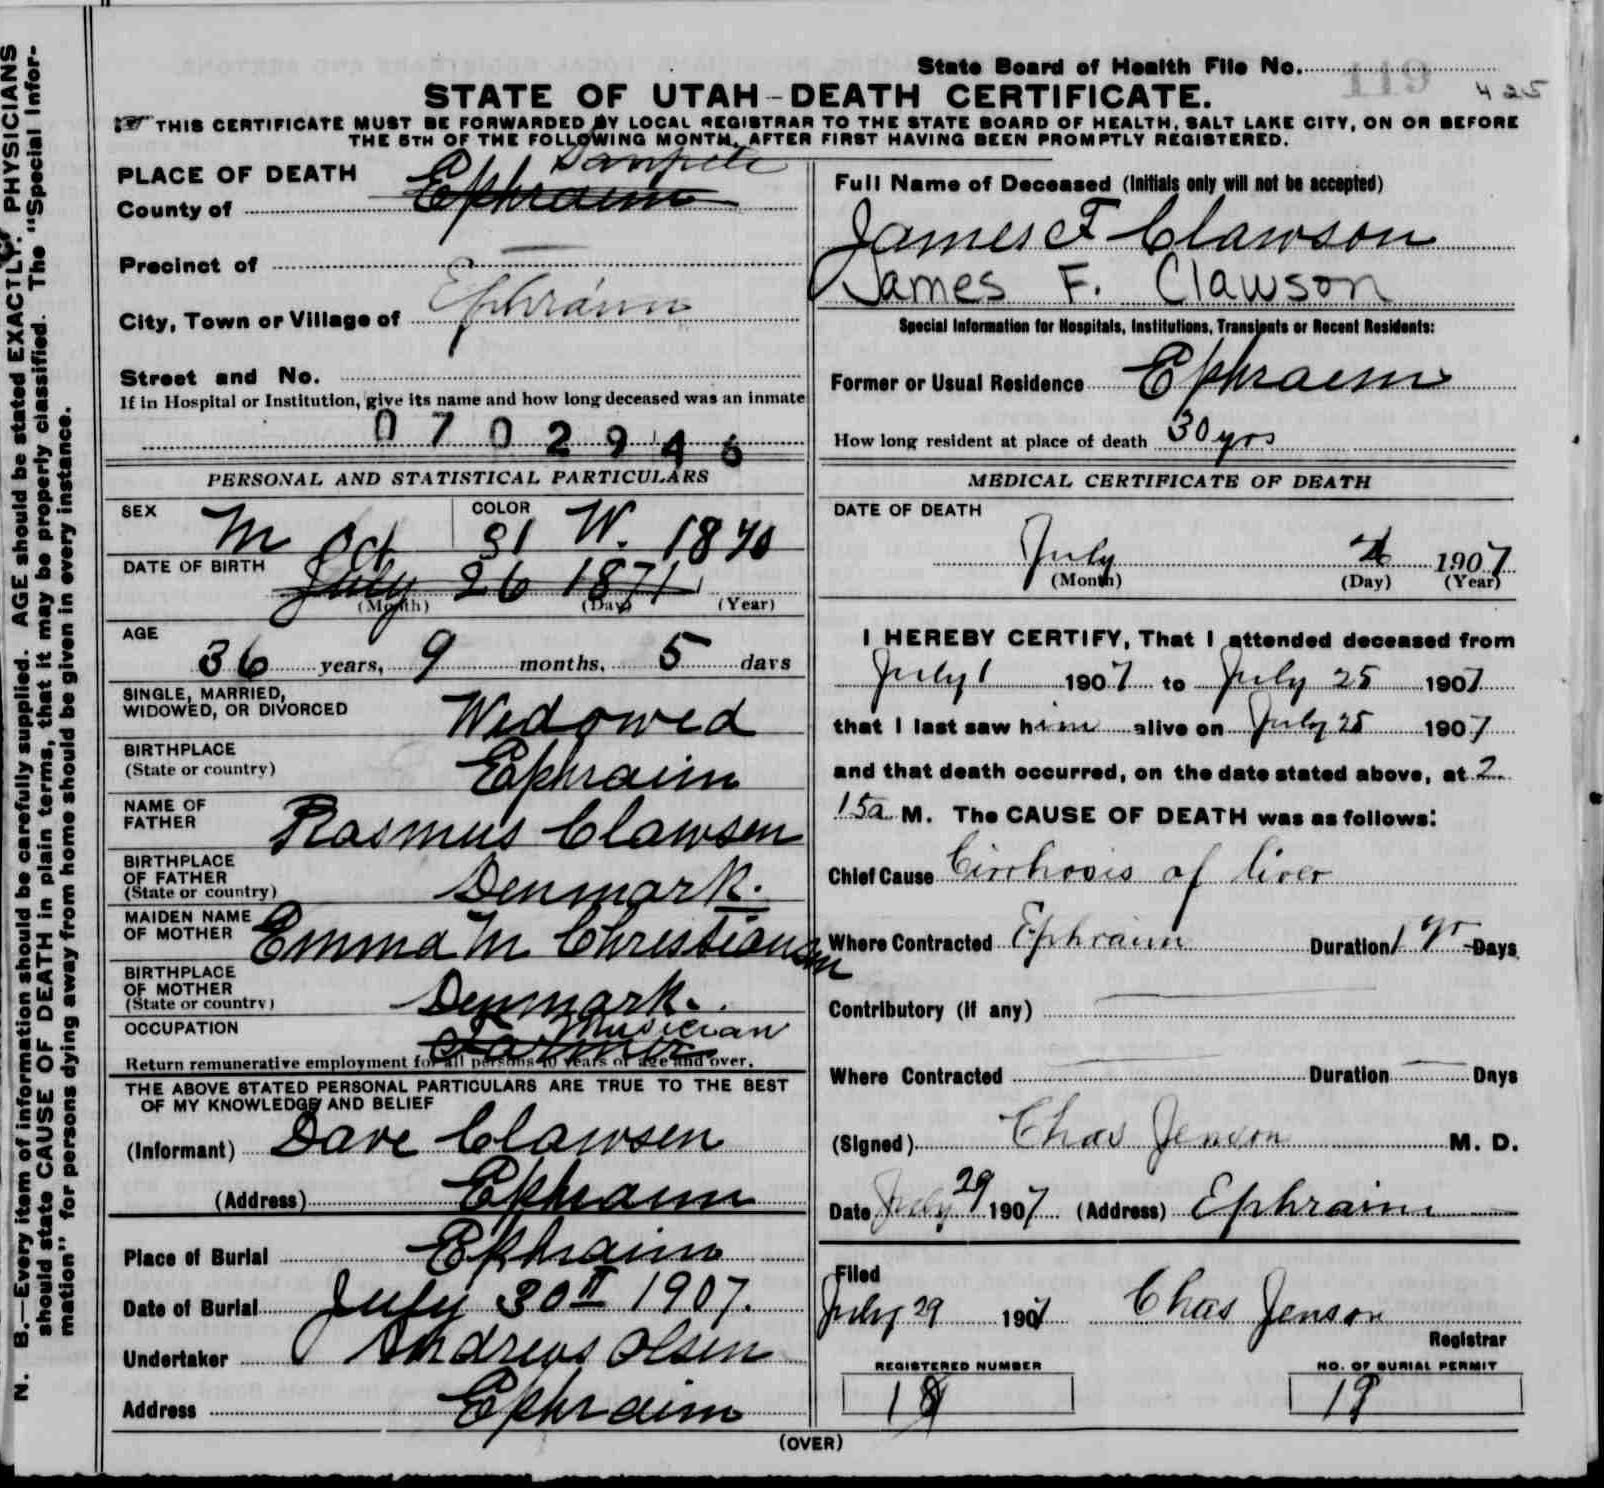 N. B.—Every item of information should be carefully supplied. AGE should be stated EXACTLY. PHYSICIANS
should state CAUSE OF DEATH in plain terms, that it may be properly classified. The "Special Infor-
mation" for persons dying away from home should be given in every instance.
State Board of Health File No. 119 425
STATE OF UTAH–DEATH CERTIFICATE.
☞ THIS CERTIFICATE MUST BE FORWARDED BY LOCAL REGISTRAR TO THE STATE BOARD OF HEALTH, SALT LAKE CITY, ON OR BEFORE
THE 5TH OF THE FOLLOWING MONTH, AFTER FIRST HAVING BEEN PROMPTLY REGISTERED.
PLACE OF DEATH Sanpete
County of Ephraim
Precinct of
City, Town or Village of Ephraim
Street and No.
If in Hospital or Institution, give its name and how long deceased was an inmate
0702946
PERSONAL AND STATISTICAL PARTICULARS
SEX M COLOR W.
Oct 31 1870
DATE OF BIRTH July 26 1871
(Month) (Day) (Year)
AGE
36 years, 9 months, 5 days
SINGLE, MARRIED,
WIDOWED, OR DIVORCED Widowed
BIRTHPLACE
(State or country) Ephraim
NAME OF
FATHER Rasmus Clawsen
BIRTHPLACE
OF FATHER
(State or country) Denmark.
MAIDEN NAME
OF MOTHER Emma M Christiansen
BIRTHPLACE
OF MOTHER
(State or country) Denmark.
OCCUPATION Musician
Return remunerative employment for all persons 10 years of age and over.
THE ABOVE STATED PERSONAL PARTICULARS ARE TRUE TO THE BEST
OF MY KNOWLEDGE AND BELIEF
(Informant) Dave Clawsen
(Address) Ephraim
Place of Burial Ephraim
Date of Burial July 30 1907.
Undertaker Andrews Olsen
Address Ephraim
Full Name of Deceased (Initials only will not be accepted)
James F Clawson
James F. Clawson
Special Information for Hospitals, Institutions, Transients or Recent Residents:
Former or Usual Residence Ephraim
How long resident at place of death 30 yrs
MEDICAL CERTIFICATE OF DEATH
DATE OF DEATH
July 1907
(Month) (Day) (Year)
I HEREBY CERTIFY, That I attended deceased from
July 1 1907 to July 25 1907
that I last saw him alive on July 25 1907
and that death occurred, on the date stated above, at 2
15a M. The CAUSE OF DEATH was as follows:
Chief Cause Cirrhosis of liver
Where Contracted Ephraim Duration 1 yr Days
Contributory (if any)
Where Contracted Duration Days
(Signed) Chas Jenson M. D.
Date July 29 1907 (Address) Ephraim
Filed
July 29 1907 Chas Jenson
Registrar
REGISTERED NUMBER NO. OF BURIAL PERMIT
18 19
(OVER)